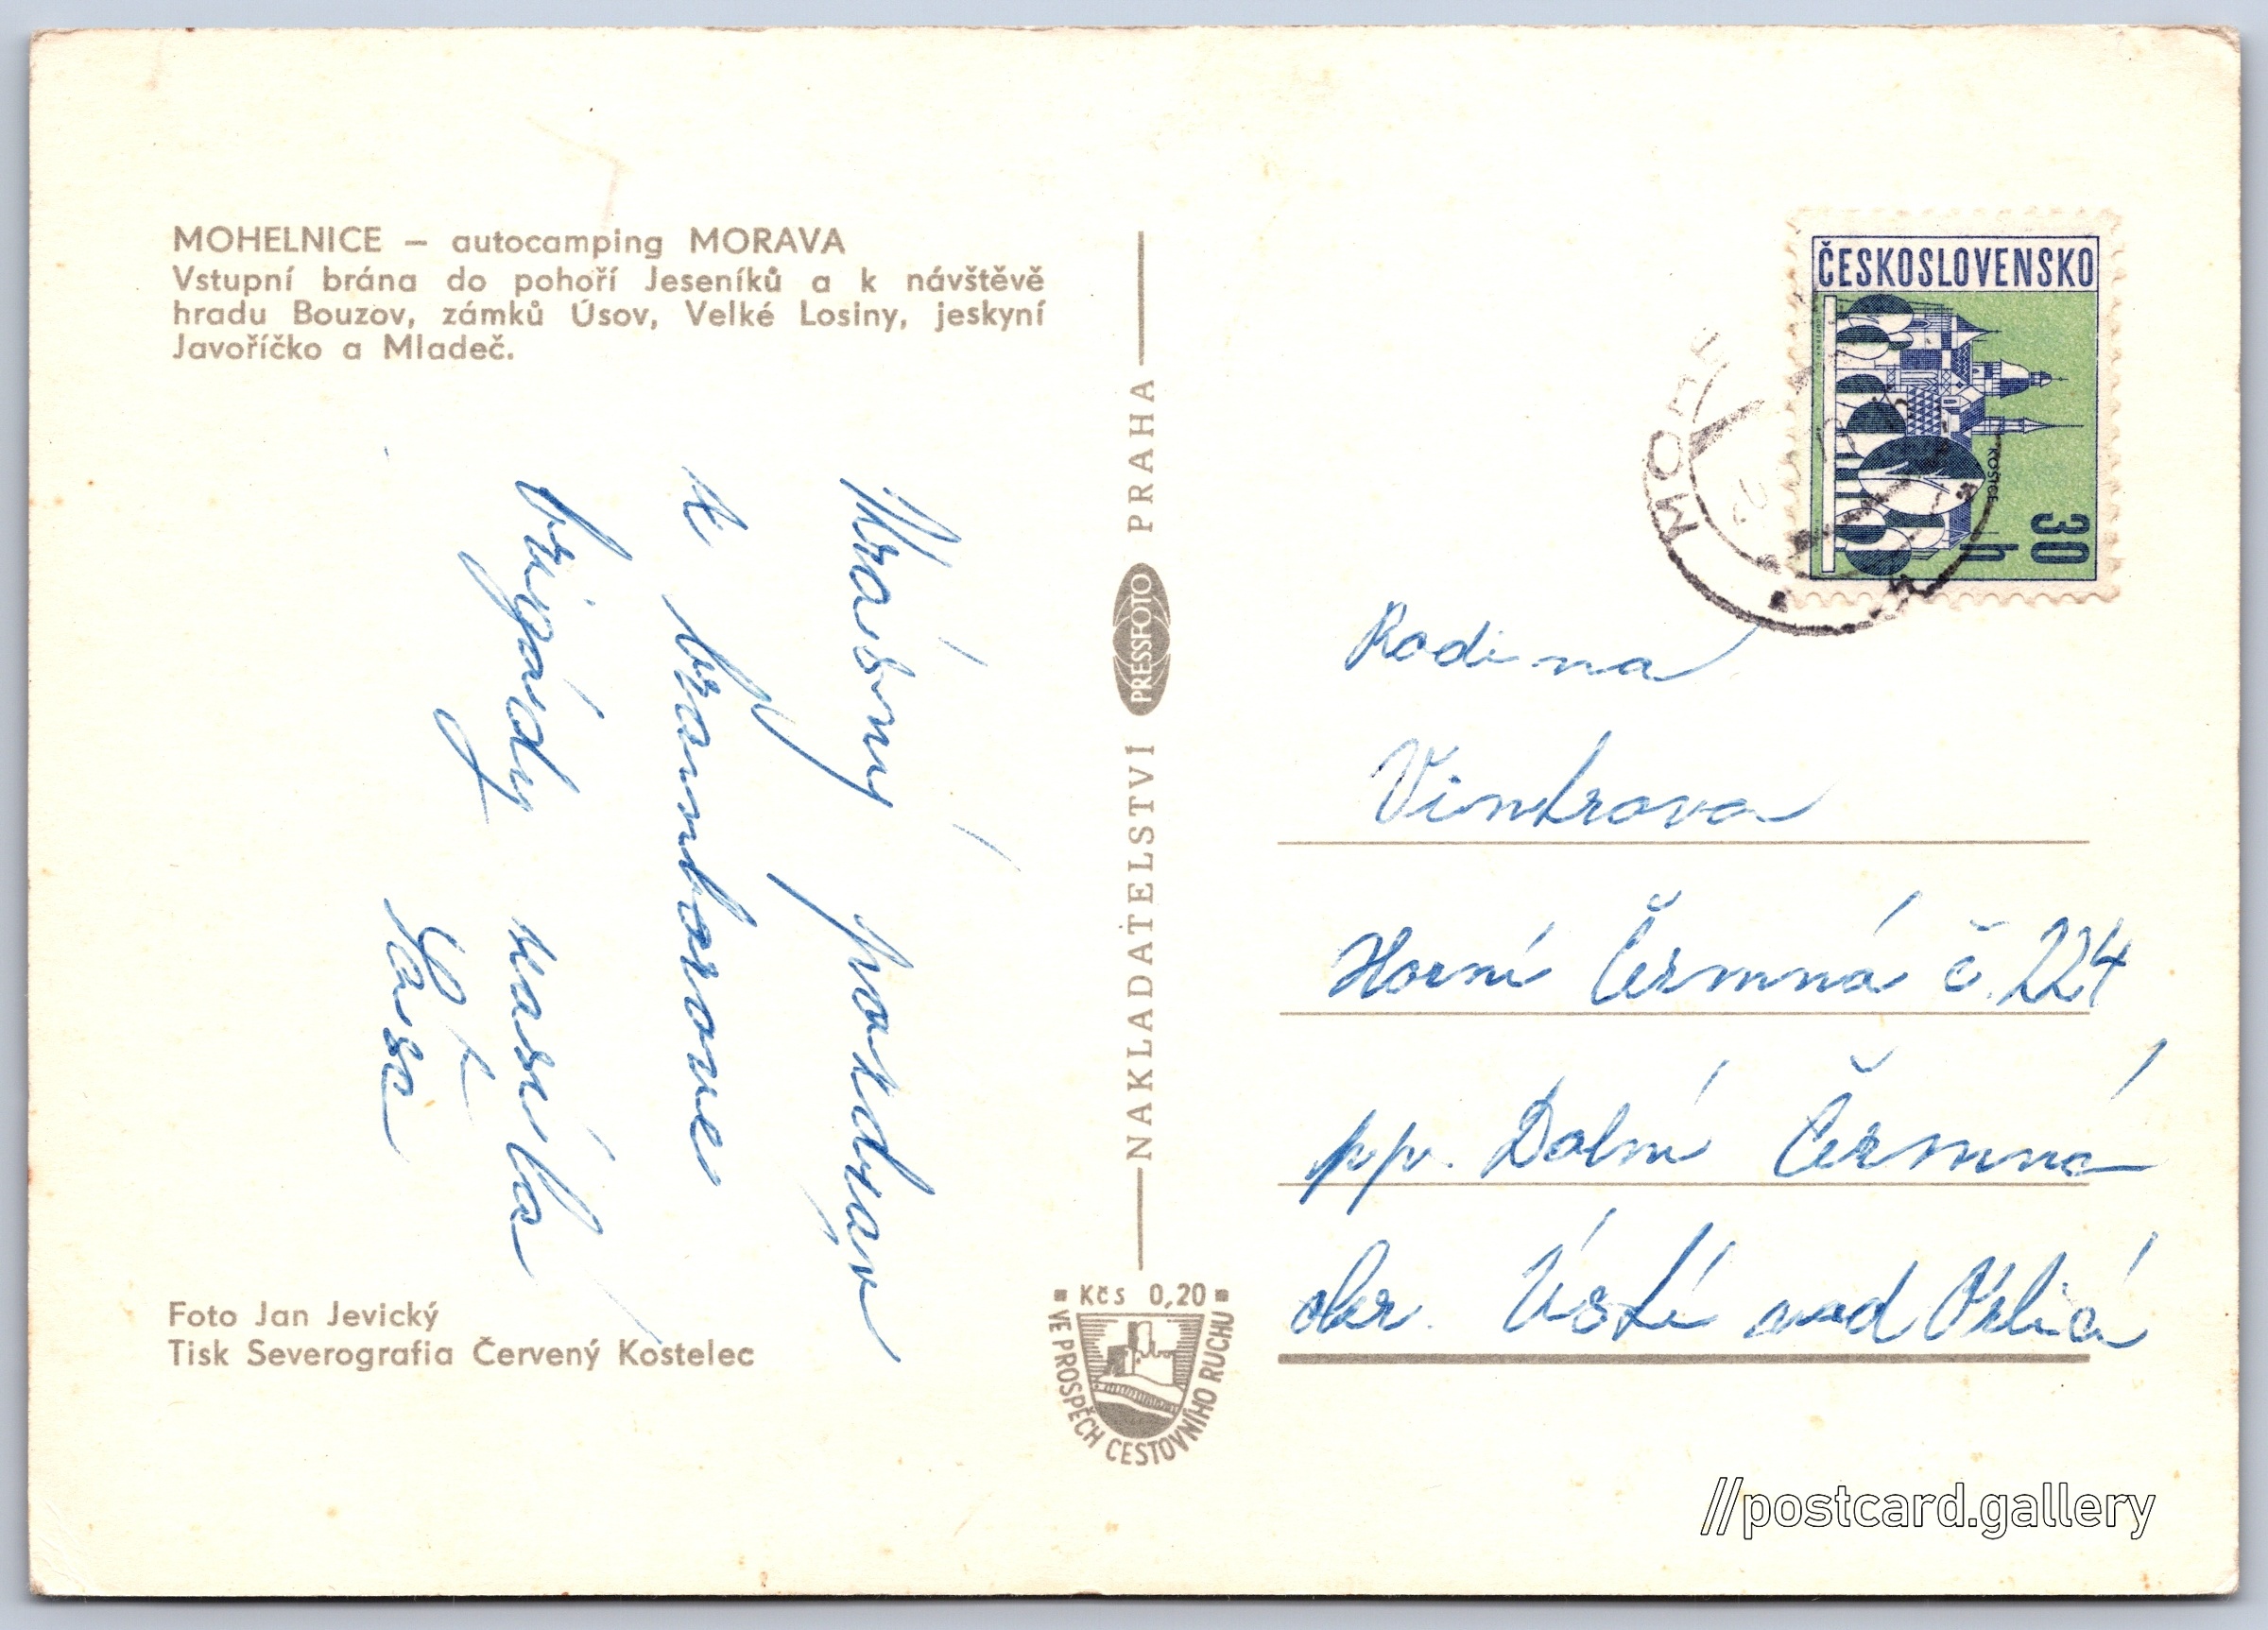 MOHELNICE – autocamping MORAVA
Vstupní brána do pohoří Jeseníků a k návštěvě
hradu Bouzov, zámků Úsov, Velké Losiny, jeskyní
Javoříčko a Mladeč.
Krásný pozdrav
z bramborove
brigády zasíla
Sáša
Foto Jan Jevický
Tisk Severografia Červený Kostelec
NAKLADATELSTVÍ PRESSFOTO PRAHA
Kčs 0,20
VE PROSPĚCH CESTOVNÍHO RUCHU
ČESKOSLOVENSKO
KOŠICE
30 h
Rodina
Vintrova
Horní Čermná č. 224
pp. Dolní Čermná
okr. Ústí nad Orlicí
//postcard.gallery